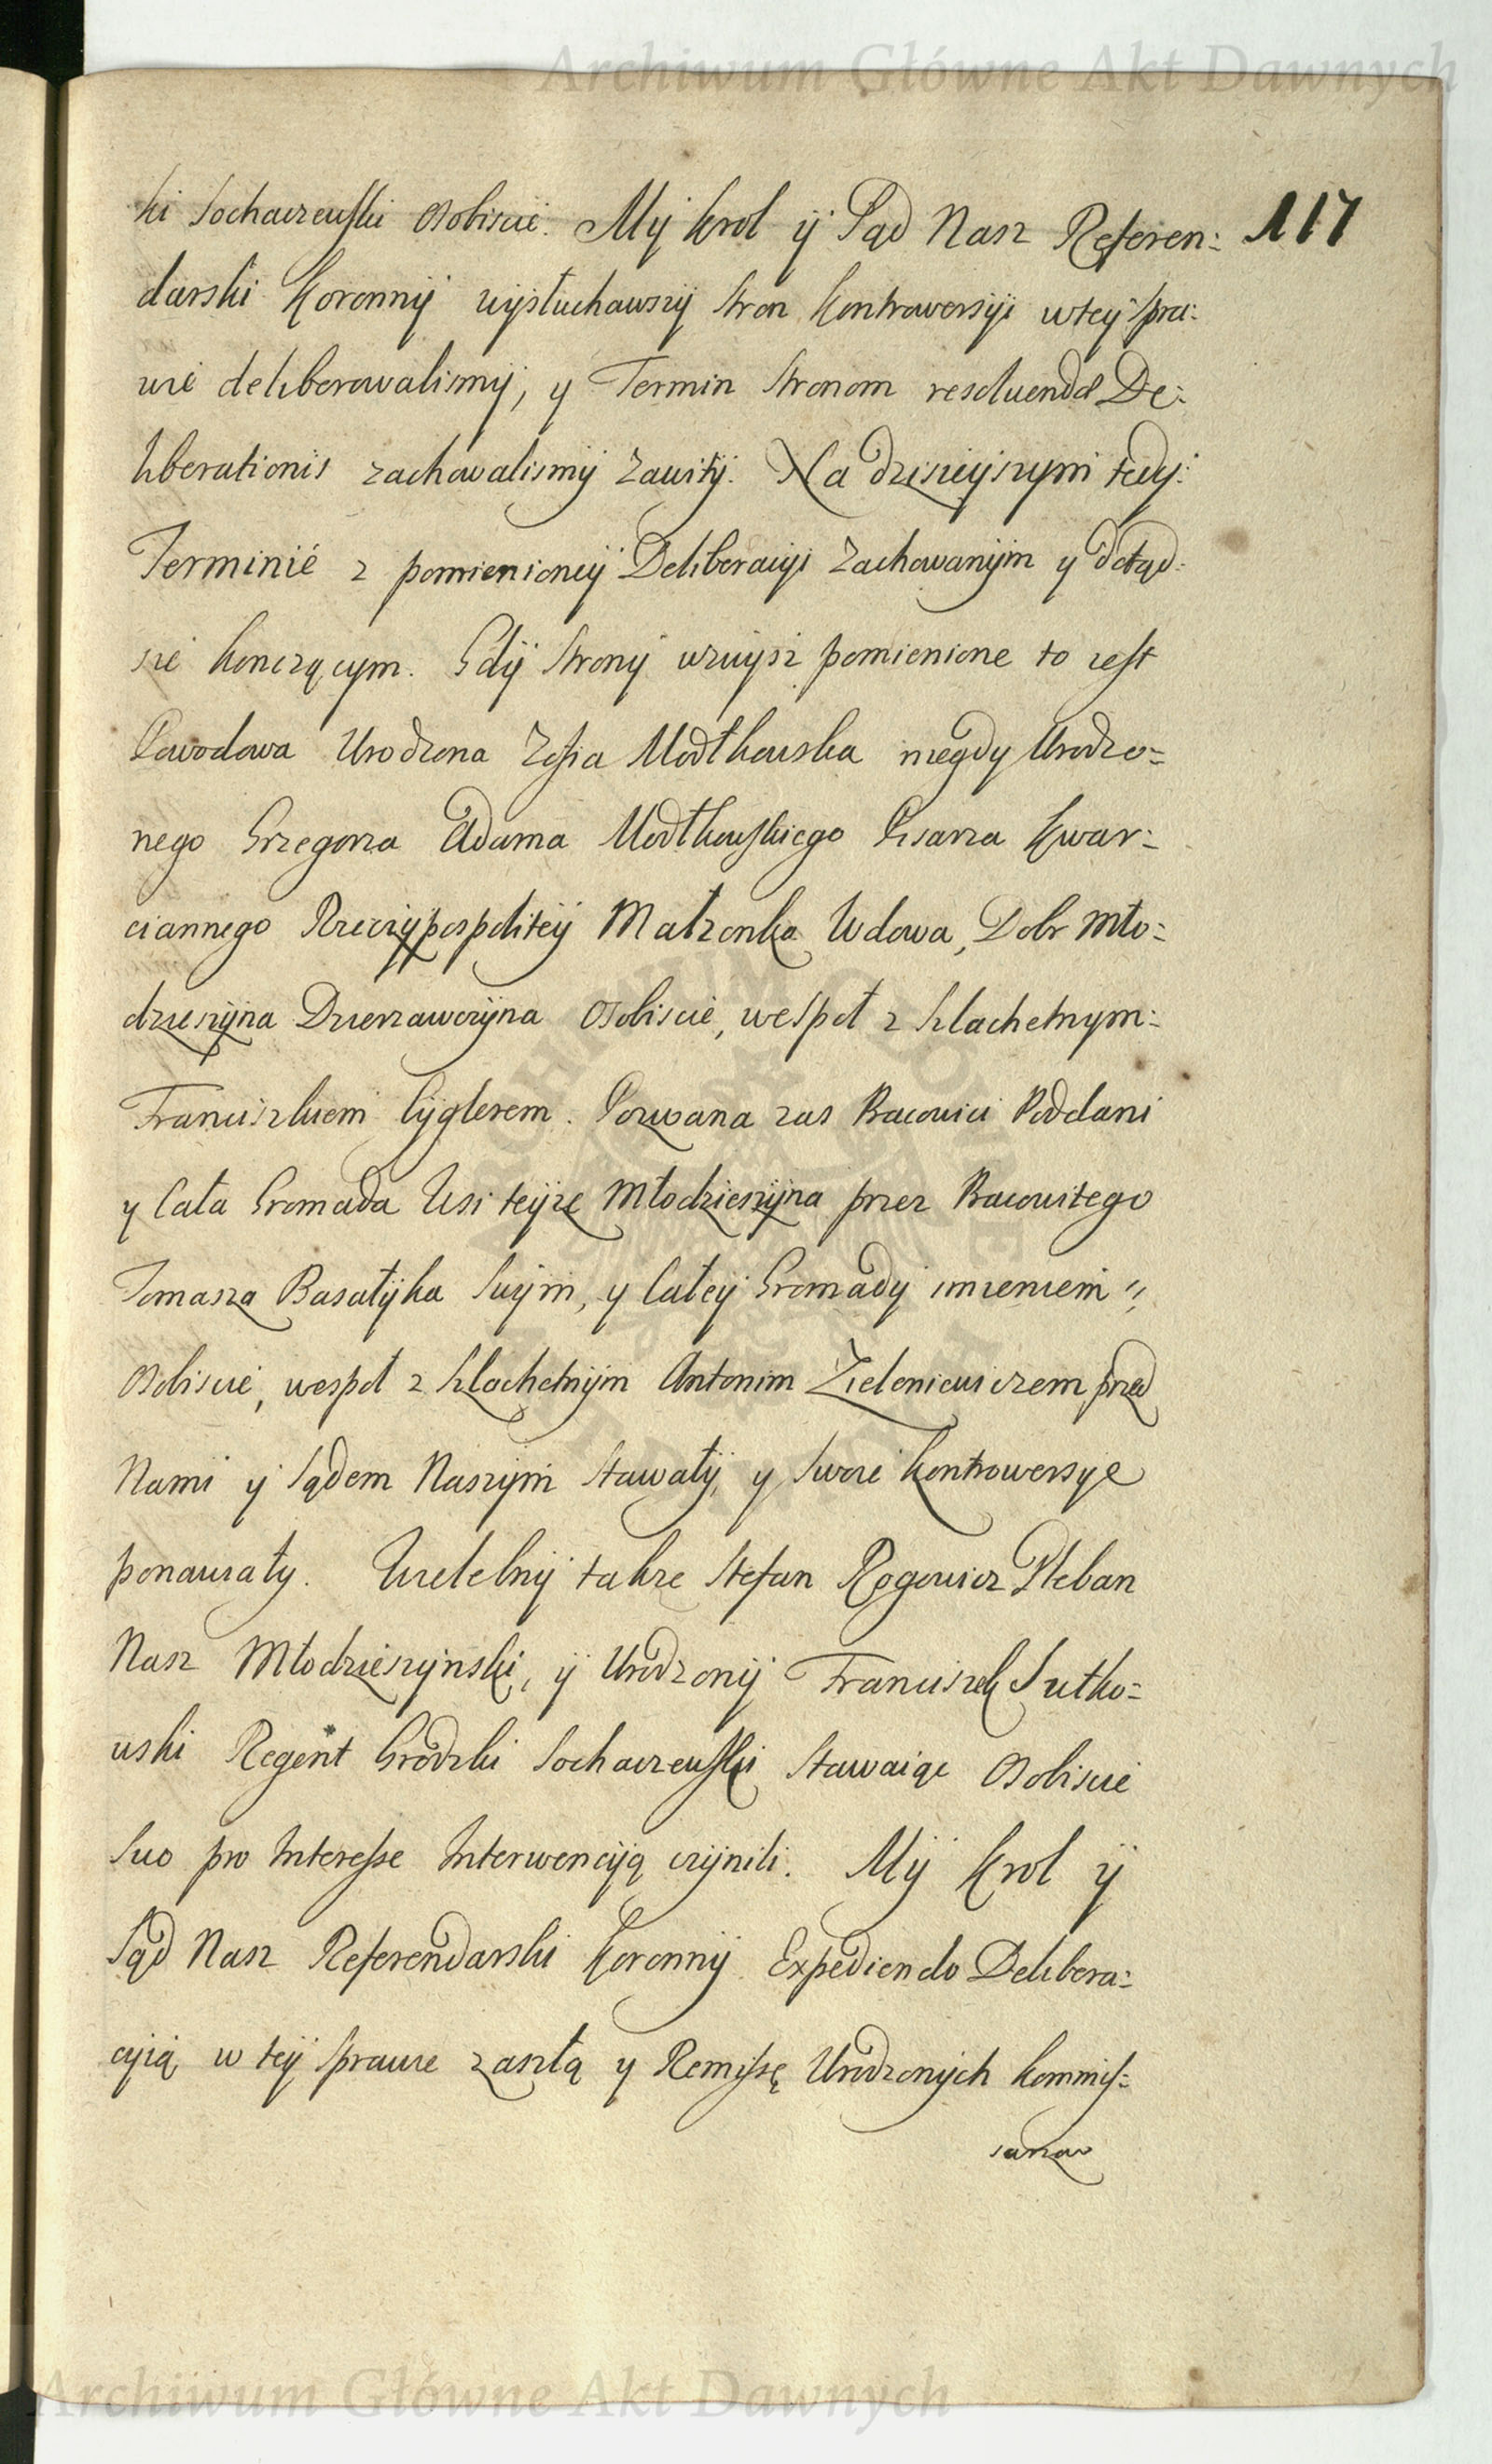 Archiwum Główne Akt Dawnych
ki Sochaczewski osobiscie. My Krol y Sąd Nasz Referen: 117
darski Koronny wysłuchawszy stron kontrowersyi w tey spra:
wie deliberowalismy, y Termin stronom resolvendæ De:
liberationis zachowalismy zawity. Na dzisieyszym tedy:
Terminie z pomienioney Deliberacyi zachowanym y dotąd:
sie konczącym. Gdy strony wzwysz pomienione to iest
Powodowa Urodzona Zofia Modłkowska niegdy Urodzo=
nego Grzegorza Adama Modłkowskiego Pisarza Kwar=
ciannego Rzeczypospolitey Małzonka Wdowa, Dobr Mło=
dzieszyna Dzierzawczyna osobiscie, wespoł z szlachetnym=
Franciszkiem Cyglerem. Pozwana zas Pracowici Poddani
y Cała Gromada Wsi teyze Młodzieszyna przez Pracowitego
Tomasza Basałyka swym, y Całey Gromady imieniem "
osobiscie, wespoł z szlachetnym Antonim Zieleniewiczem przed
Nami y Sądem Naszym stawały, y swoie kontrowersye
ponawiały. Wielebny takze Stefan Rogowicz Pleban
Nasz Młodzieszynski, y Urodzony Franciszek Sutko=
wski Regent Grodzki Sochaczewski stawaiąc osobiscie
suo pro Interesse Interwencyą czynili. My Krol y
Sąd Nasz Referendarski Koronny Expediendo Delibera=
cyią w tey sprawie zaszłą y Remissę Urodzonych Kommis=
sarzow
Archiwum Główne Akt Dawnych